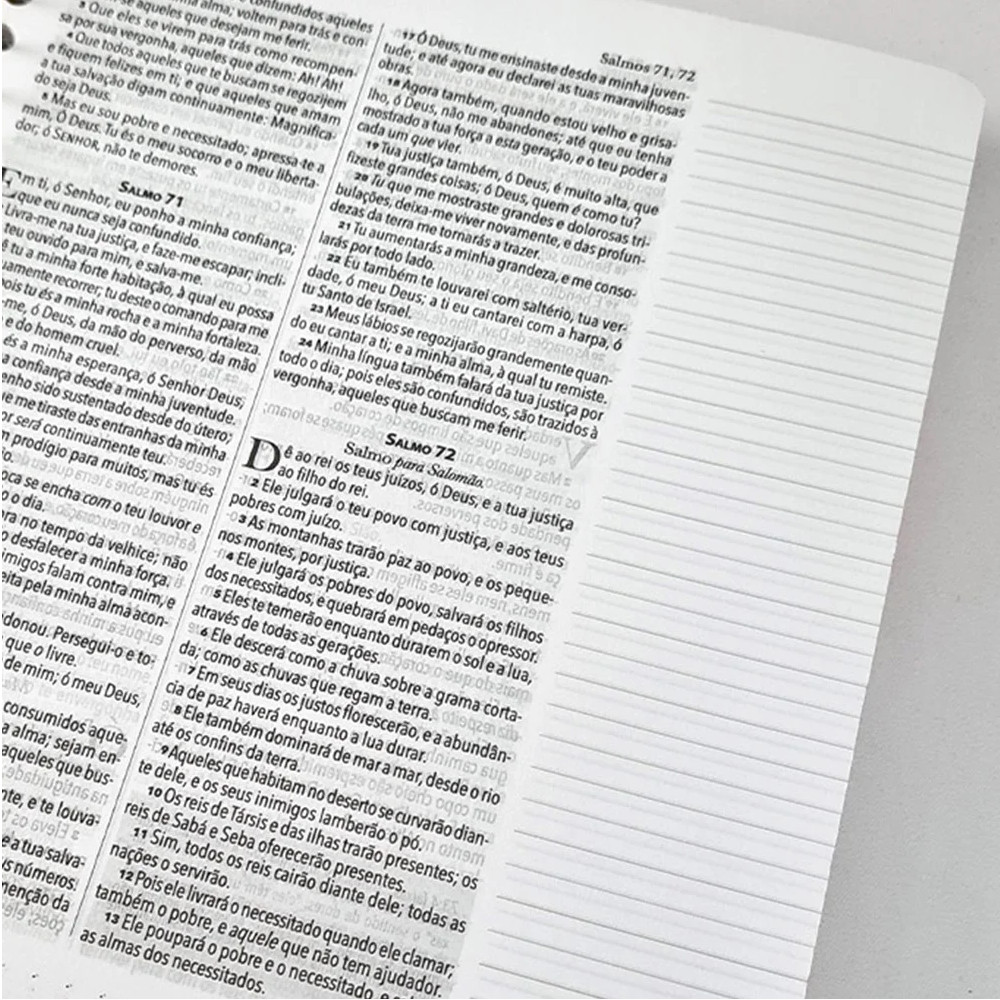 Salmos 71, 72
confundidos aqueles
alma; voltem para trás e con-
se aqueles que desejam me ferir.
3 Que eles se virem para trás como recompen-
sa por sua vergonha, aqueles que dizem: Ah! Ah!
4 Que todos aqueles que te buscam se regozijem
e fiquem felizes em ti; e que aqueles que amam
a tua salvação digam continuamente: Magnifica-
do seja Deus.
5 Mas eu sou pobre e necessitado; apressa-te a
mim, Ó Deus. Tu és o meu socorro e o meu liberta-
dor; ó SENHOR, não te demores.
SALMO 71
Em ti, ó Senhor, eu ponho a minha confiança;
que eu nunca seja confundido.
Livra-me na tua justiça, e faze-me escapar; incli-
teu ouvido para mim, e salva-me.
ê tu a minha forte habitação, à qual eu possa
uamente recorrer; tu deste o comando para me
pois tu és a minha rocha e a minha fortaleza.
-me, ó Deus, da mão do perverso, da mão
e do homem cruel.
és a minha esperança, ó Senhor Deus;
a confiança desde a minha juventude.
enho sido sustentado desde do útero;
e me tiraste das entranhas da minha
or será continuamente teu.
prodígio para muitos, mas tu és
o.
oca se encha com o teu louvor e
o o dia.
ra no tempo da velhice; não
o desfalecer a minha força.
imigos falam contra mim, e
eita pela minha alma acon-
donou. Persegui-o e to-
que o livre.
de mim; ó meu Deus,
consumidos aque-
a alma; sejam en-
aqueles que bus-
nte, e te louva-
a tua salva-
s números.
menção da
17 Ó Deus, tu me ensinaste desde a minha juven-
tude; e até agora eu declarei as tuas maravilhosas
obras.
18 Agora também, quando estou velho e grisa-
lho, ó Deus, não me abandones; até que eu tenha
mostrado a tua força a esta geração, e o teu poder a
cada um que vier.
19 Tua justiça também, ó Deus, é muito alta, que
fizeste grandes coisas; ó Deus, quem é como tu?
20 Tu que me mostraste grandes e dolorosas tri-
bulações, deixa-me viver novamente, e das profun-
dezas da terra me tornarás a trazer.
21 Tu aumentarás a minha grandeza, e me conso-
larás por todo lado.
22 Eu também te louvarei com saltério, tua ver-
dade, ó meu Deus; a ti eu cantarei com a harpa, ó
tu Santo de Israel.
23 Meus lábios se regozijarão grandemente quan-
do eu cantar a ti; e a minha alma, à qual tu remiste.
24 Minha língua também falará da tua justiça por
todo o dia; pois eles são confundidos, são trazidos à
vergonha, aqueles que buscam me ferir.
SALMO 72
Salmo para Salomão.
Dê ao rei os teus juízos, ó Deus, e a tua justiça
ao filho do rei.
2 Ele julgará o teu povo com justiça, e aos teus
pobres com juízo.
3 As montanhas trarão paz ao povo, e os peque-
nos montes, por justiça.
4 Ele julgará os pobres do povo, salvará os filhos
dos necessitados, e quebrará em pedaços o opressor.
5 Eles te temerão enquanto durarem o sol e a lua,
através de todas as gerações.
6 Ele descerá como a chuva sobre a grama corta-
da; como as chuvas que regam a terra.
7 Em seus dias os justos florescerão, e a abundân-
cia de paz haverá enquanto a lua durar.
8 Ele também dominará de mar a mar, desde o rio
até os confins da terra.
9 Aqueles que habitam no deserto se curvarão dian-
te dele, e os seus inimigos lamberão o pó.
10 Os reis de Társis e das ilhas trarão presentes; os
reis de Sabá e Seba oferecerão presentes.
11 Sim, todos os reis cairão diante dele; todas as
nações o servirão.
12 Pois ele livrará o necessitado quando ele clamar;
também o pobre, e aquele que não tem ajudador.
13 Ele poupará o pobre e o necessitado
as almas dos necessitados.